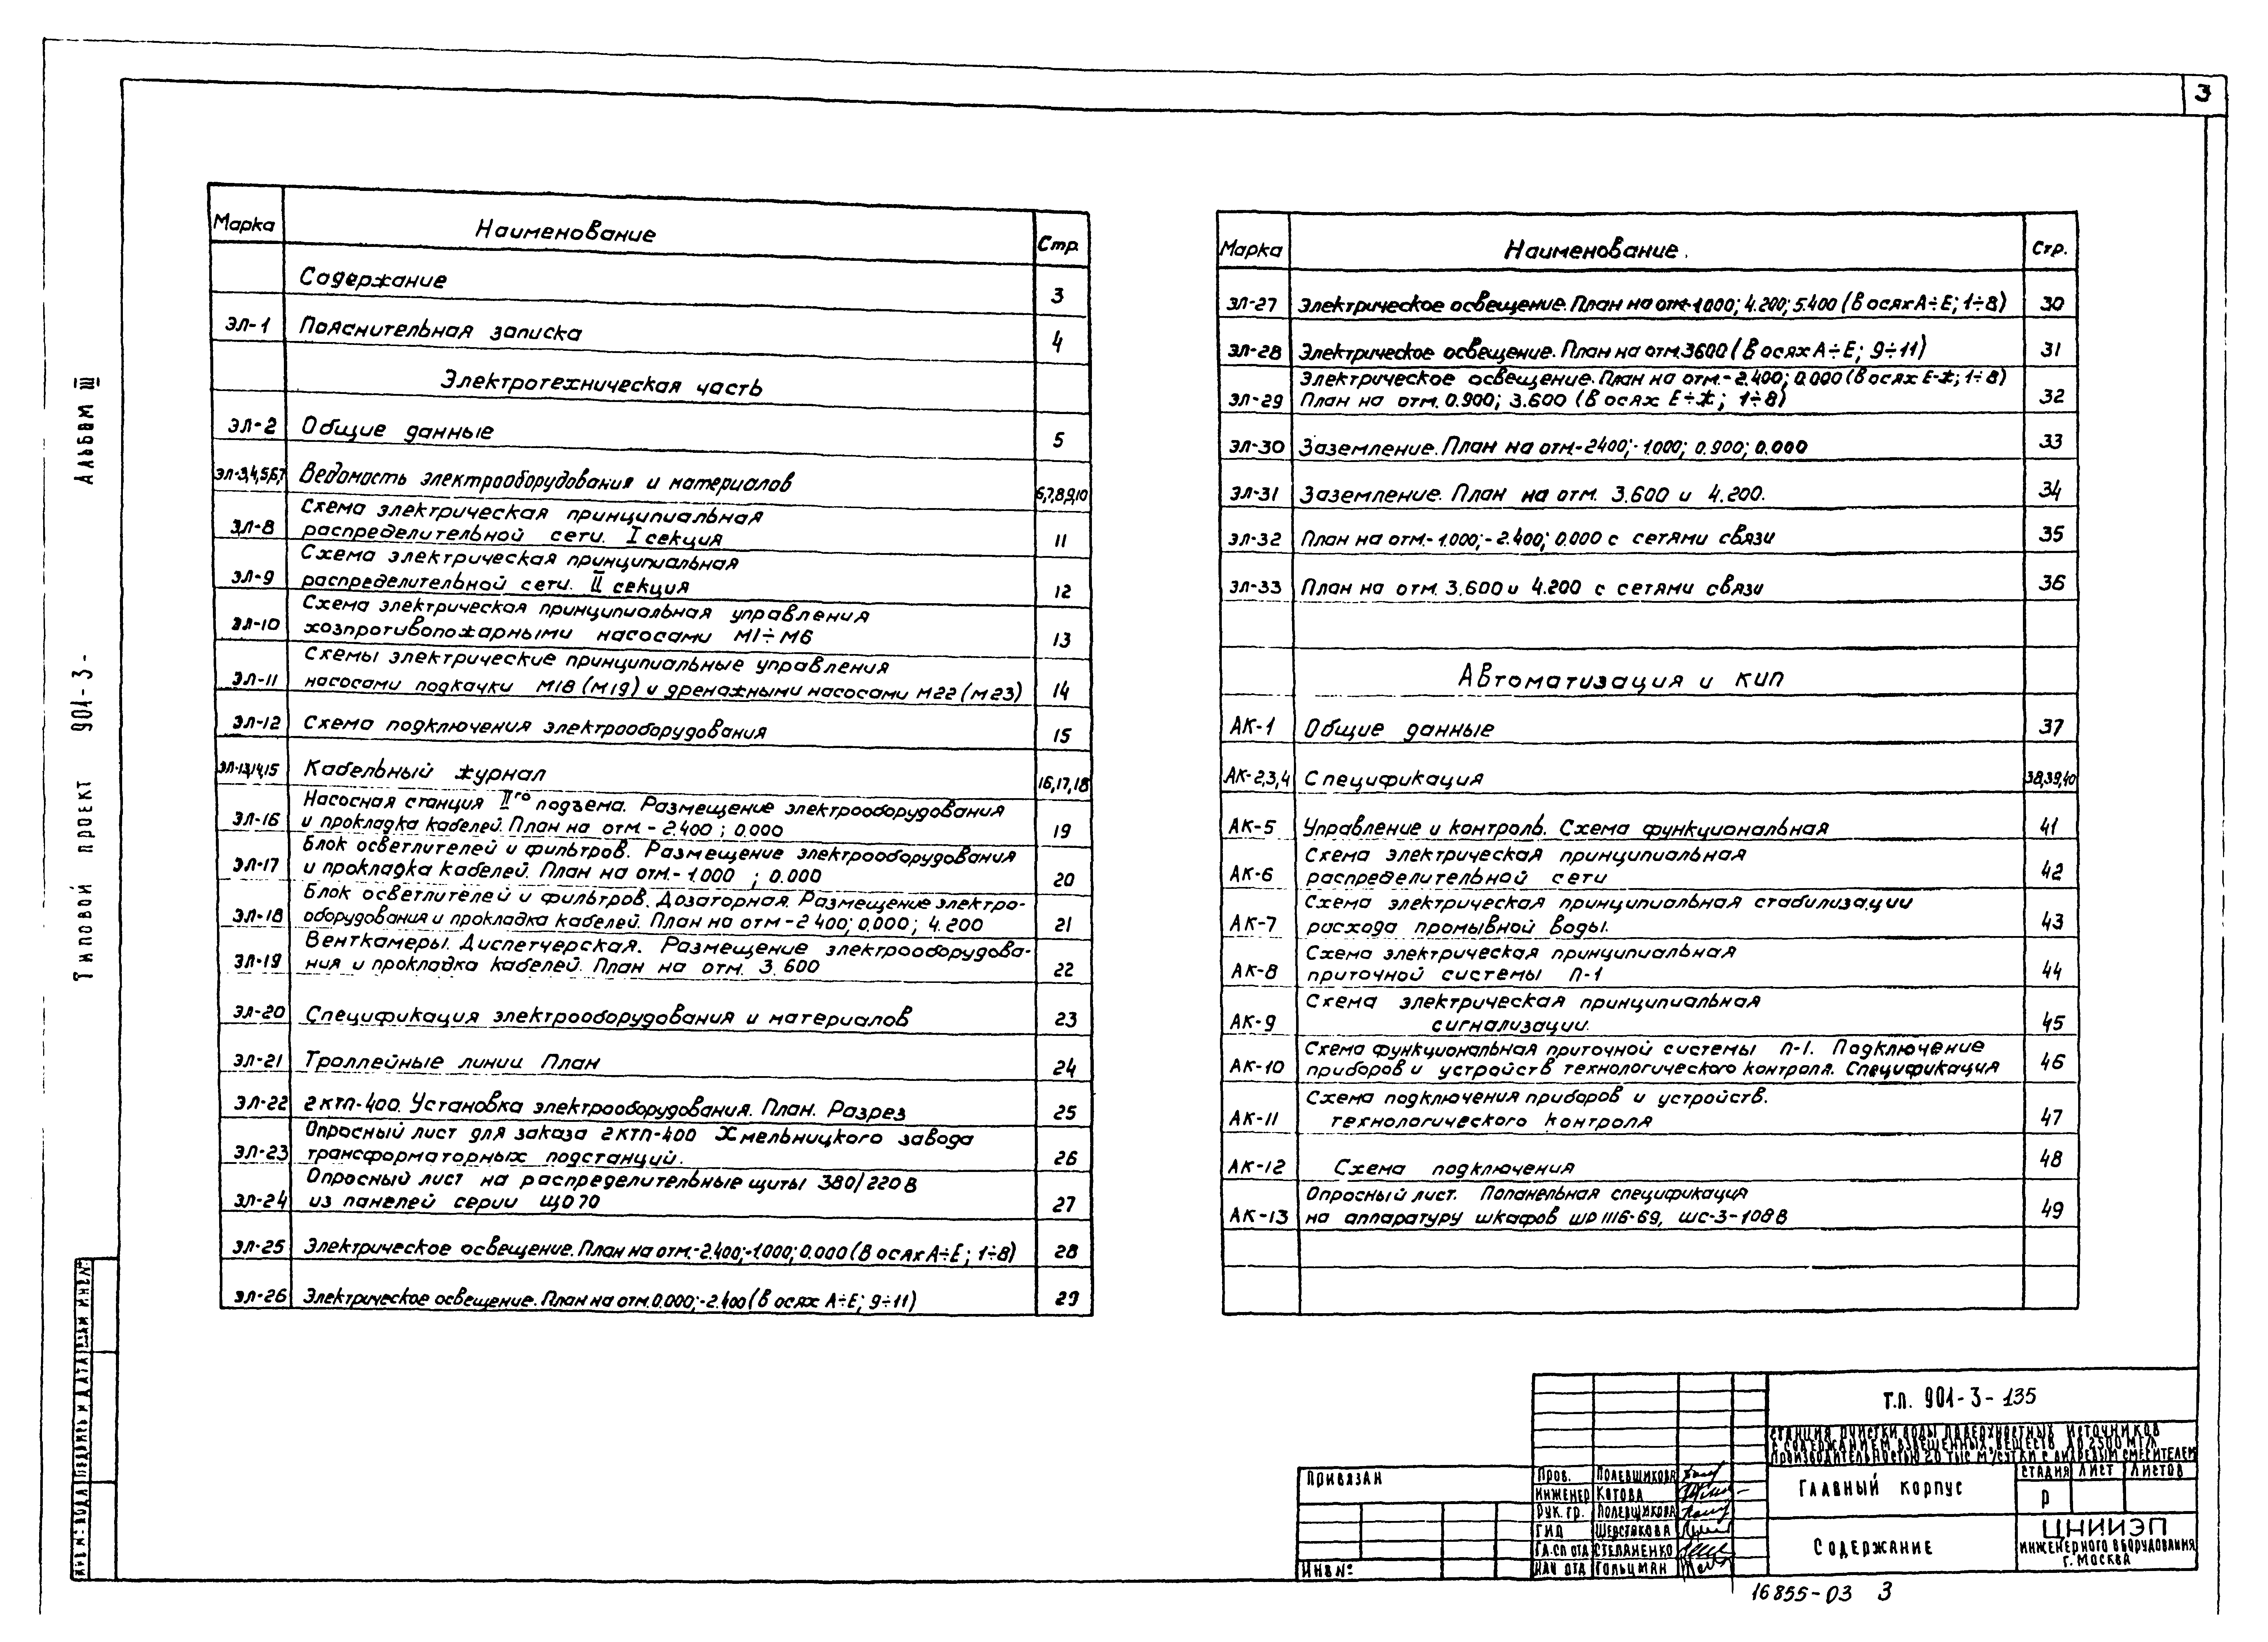 3
Альбом III
Типовой проект 901-3-
Марка Наименование Стр.
Содержание 3
ЭЛ-1 Пояснительная записка 4
Электротехническая часть
ЭЛ-2 Общие данные 5
ЭЛ-3,4,5,6,7 Ведомость электрооборудования и материалов 6,7,8,9,10
Схема электрическая принципиальная
ЭЛ-8 распределительной сети. I секция 11
Схема электрическая принципиальная
ЭЛ-9 распределительной сети. II секция 12
Схема электрическая принципиальная управления
ЭЛ-10 хозпротивопожарными насосами М1÷М6 13
Схемы электрические принципиальные управления
ЭЛ-11 насосами подкачки М18 (М19) и дренажными насосами М22 (М23) 14
ЭЛ-12 Схема подключения электрооборудования 15
ЭЛ-13,14,15 Кабельный журнал 16,17,18
Насосная станция IIго подъема. Размещение электрооборудования
ЭЛ-16 и прокладка кабелей. План на отм - 2.400 ; 0.000 19
Блок осветлителей и фильтров. Размещение электрооборудования
ЭЛ-17 и прокладка кабелей. План на отм.- 1.000 ; 0.000 20
Блок осветлителей и фильтров. Дозаторная. Размещение электро-
ЭЛ-18 оборудования и прокладка кабелей. План на отм -2 400; 0.000; 4.200 21
Венткамеры. Диспетчерская. Размещение электрооборудова-
ЭЛ-19 ния и прокладка кабелей. План на отм. 3.600 22
ЭЛ-20 Спецификация электрооборудования и материалов 23
ЭЛ-21 Троллейные линии План 24
ЭЛ-22 2КТП-400. Установка электрооборудования. План. Разрез 25
Опросный лист для заказа 2КТП-400 Хмельницкого завода
ЭЛ-23 трансформаторных подстанций. 26
Опросный лист на распределительные щиты 380/220 В
ЭЛ-24 из панелей серии ЩО70 27
ЭЛ-25 Электрическое освещение. План на отм.-2.400;-1.000; 0.000 (В осях А÷Е; 1÷8) 28
ЭЛ-26 Электрическое освещение. План на отм. 0.000;-2.400 (в осях А÷Е; 9÷11) 29
Марка Наименование. Стр.
ЭЛ-27 Электрическое освещение. План на отм-1.000; 4.200; 5.400 (в осях А÷Е; 1÷8) 30
ЭЛ-28 Электрическое освещение. План на отм. 3600 (в осях А÷Е; 9÷11) 31
Электрическое освещение. План на отм.-2.400; 0.000 (в осях Е-Ж; 1÷8)
ЭЛ-29 План на отм. 0.900; 3.600 (в осях Е÷Ж; 1÷8) 32
ЭЛ-30 Заземление. План на отм-2400;-1.000; 0.900; 0.000 33
ЭЛ-31 Заземление. План на отм. 3.600 и 4.200. 34
ЭЛ-32 План на отм.-1.000;-2.400; 0.000 с сетями связи 35
ЭЛ-33 План на отм. 3.600 и 4.200 с сетями связи 36
Автоматизация и КИП
АК-1 Общие данные 37
АК-2,3,4 Спецификация 38,39,40
АК-5 Управление и контроль. Схема функциональная 41
Схема электрическая принципиальная
АК-6 распределительной сети 42
Схема электрическая принципиальная стабилизации
АК-7 расхода промывной воды. 43
Схема электрическая принципиальная
АК-8 приточной системы П-1 44
Схема электрическая принципиальная
АК-9 сигнализации. 45
Схема функциональная приточной системы П-1. Подключение
АК-10 приборов и устройств технологического контроля. Спецификация 46
Схема подключения приборов и устройств.
АК-11 технологического контроля 47
АК-12 Схема подключения 48
Опросный лист. Попанельная спецификация
АК-13 на аппаратуру шкафов ШР 1116-69, ШС-3-108 В 49
Инв№ подл Подпись и дата Взам инв№
Привязан
Инв№:
Пров. Полевщикова
Инженер Котова
Рук. гр. Полевщикова
ГИП Шерстякова
Гл.сп отд Степаненко
Нач отд Гольцман
Т.П. 901-3-135
Станция очистки воды поверхностных источников
с содержанием взвешенных веществ до 2500 мг/л
производительностью 20 тыс м³/сутки с вихревым смесителем
Главный корпус
Стадия Лист Листов
Р
Содержание
ЦНИИЭП
инженерного оборудования
г. Москва
16855-03 3